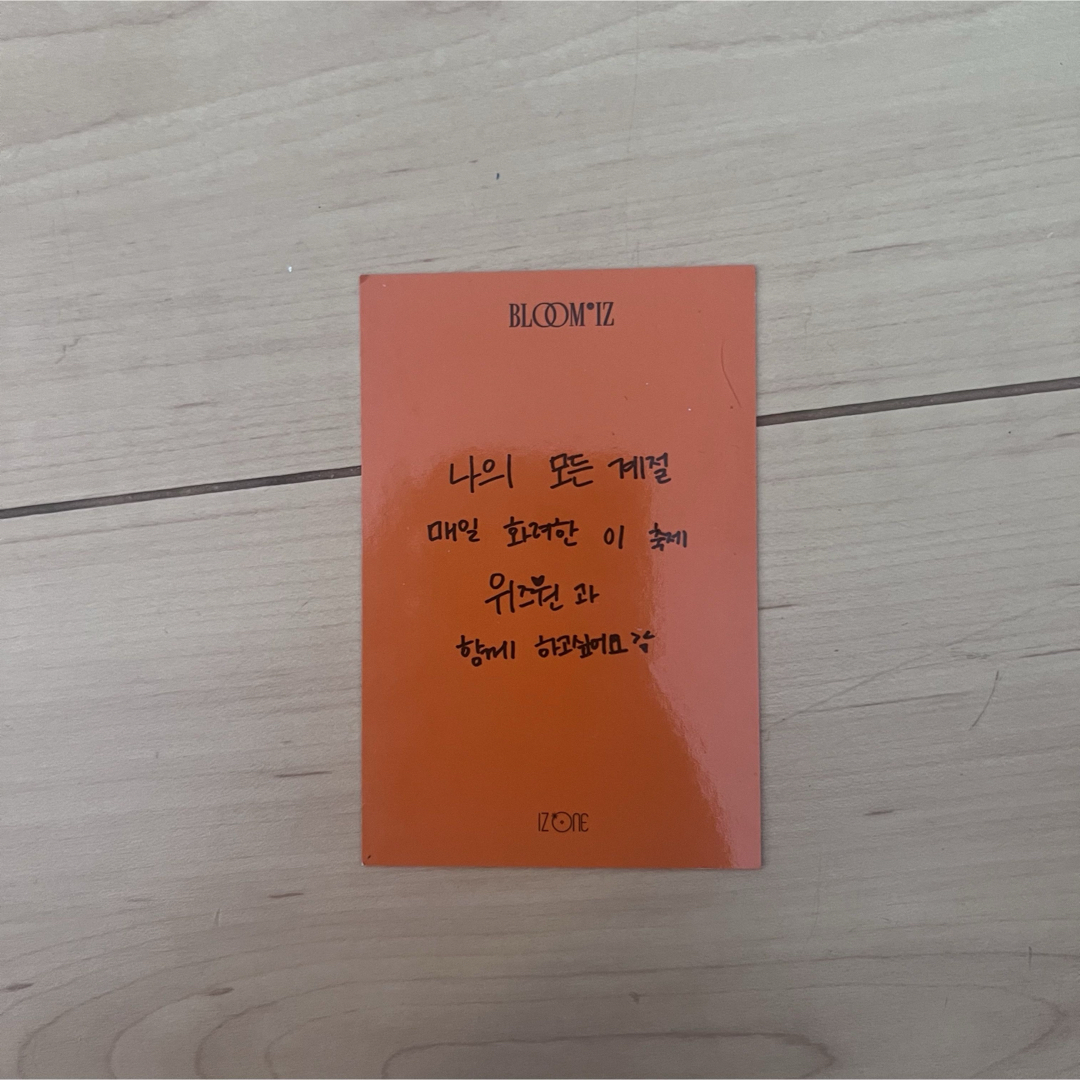 BLOOM*IZ
나의 모든 계절
매일 화려한 이 축제
위즈원 과
함께 하고싶어요
IZ*ONE